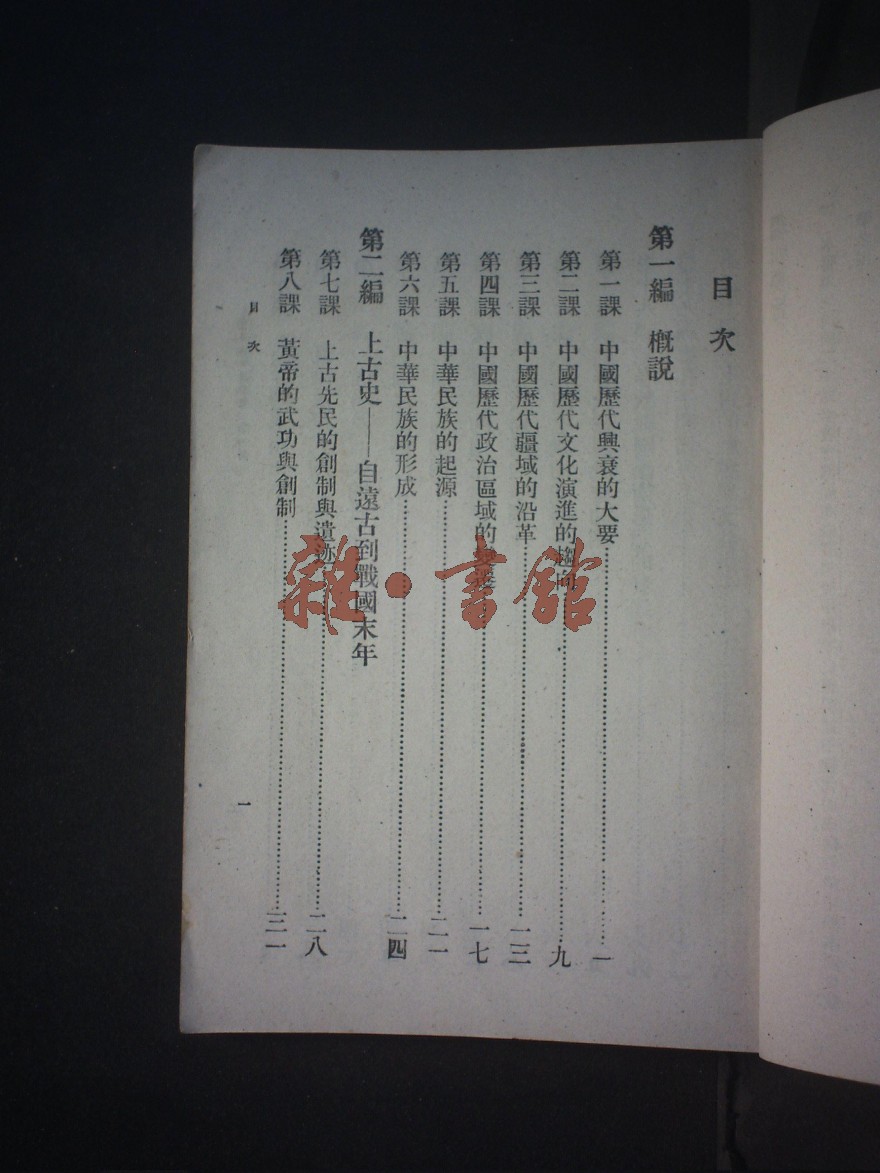 目次
第一編 概說
第一課 中國歷代興衰的大要……一
第二課 中國歷代文化演進的趨向……九
第三課 中國歷代疆域的沿革……一三
第四課 中國歷代政治區域的變遷……一七
第五課 中華民族的起源……二一
第六課 中華民族的形成……二四
第二編 上古史——自遠古到戰國末年
第七課 上古先民的創制與遺跡……二八
第八課 黃帝的武功與創制……三一
目次
一
雜·書館